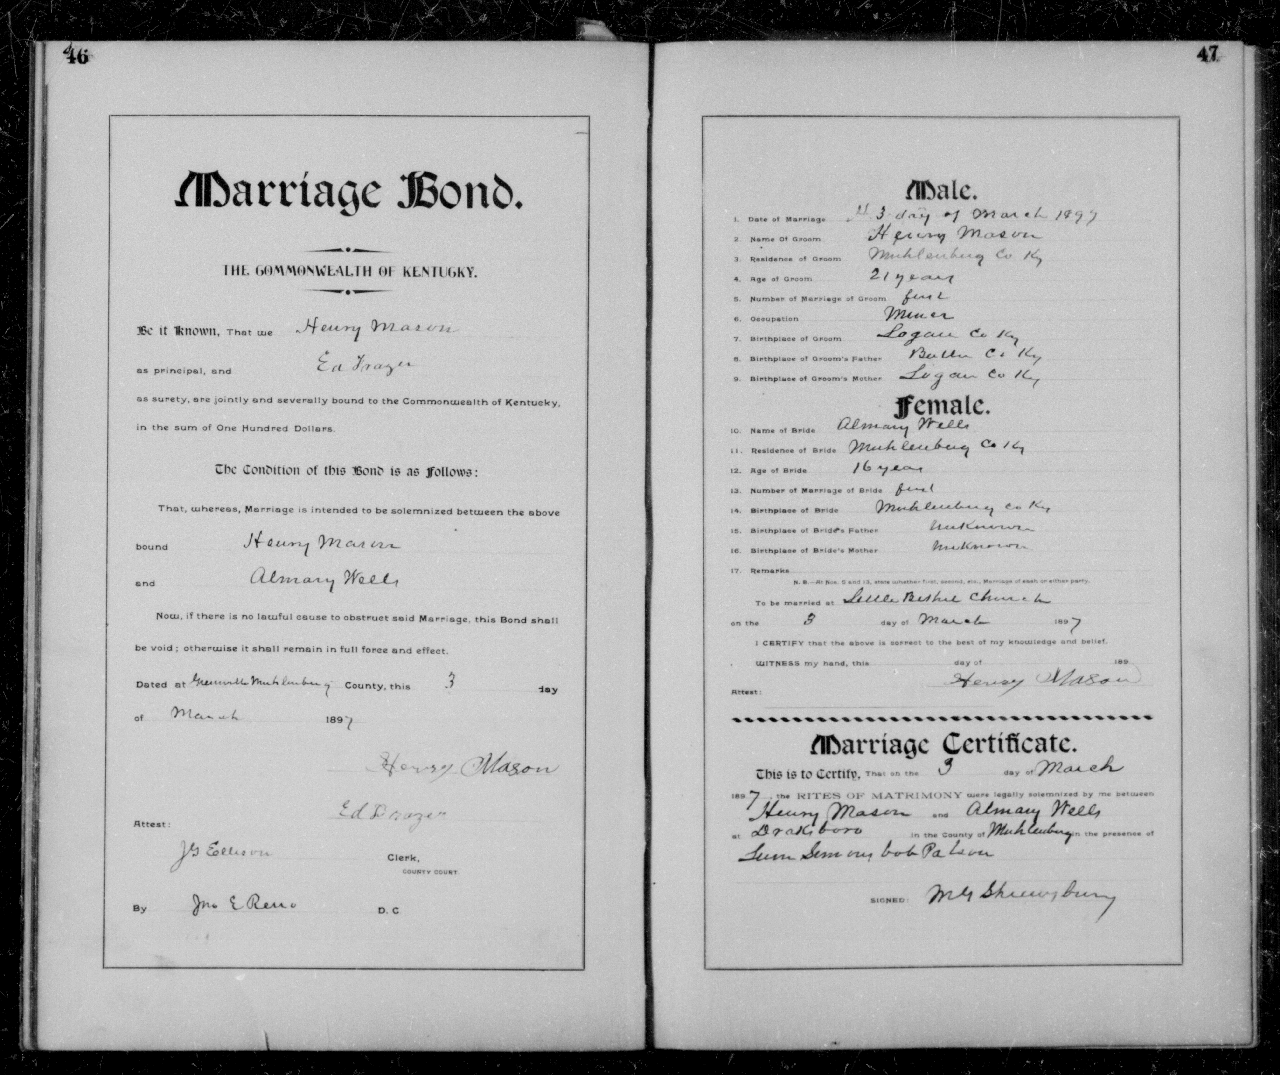 46
Marriage Bond.
THE COMMONWEALTH OF KENTUCKY.
Be it Known, That we Henry Mason
as principal, and Ed Frazer
as surety, are jointly and severally bound to the Commonwealth of Kentucky,
in the sum of One Hundred Dollars.
The Condition of this Bond is as Follows:
That, whereas, Marriage is intended to be solemnized between the above
bound Henry Mason
and Almary Wells
Now, if there is no lawful cause to obstruct said Marriage, this Bond shall
be void; otherwise it shall remain in full force and effect.
Dated at Greenville Muhlenburg County, this 3 day
of March 1897
Henry Mason
Ed Frazer
Attest:
JG Ellison Clerk,
COUNTY COURT.
By Jno E Reno D. C.
47
Male.
1. Date of Marriage 3 day of March 1897
2. Name Of Groom Henry Mason
3. Residence of Groom Muhlenburg Co Ky
4. Age of Groom 21 years
5. Number of Marriage of Groom first
6. Occupation Miner
7. Birthplace of Groom Logan Co Ky
8. Birthplace of Groom's Father Butler Co Ky
9. Birthplace of Groom's Mother Logan Co Ky
Female.
10. Name of Bride Almary Wells
11. Residence of Bride Muhlenburg Co Ky
12. Age of Bride 16 year
13. Number of Marriage of Bride first
14. Birthplace of Bride Muhlenburg Co Ky
15. Birthplace of Bride's Father Unknown
16. Birthplace of Bride's Mother Unknown
17. Remarks
N. B.—At Nos. 5 and 13, state whether first, second, etc., Marriage of each or either party.
To be married at Little Bethel Church
on the 3 day of March 1897
I CERTIFY that the above is correct to the best of my knowledge and belief.
WITNESS my hand, this day of 189
Henry Mason
Attest:
Marriage Certificate.
This is to Certify, That on the 3 day of March
1897, the RITES OF MATRIMONY were legally solemnized by me between
Henry Mason and Almary Wells
at Draksboro in the County of Muhlenburg in the presence of
Simons bob Patson
SIGNED: M G Shrewsbury